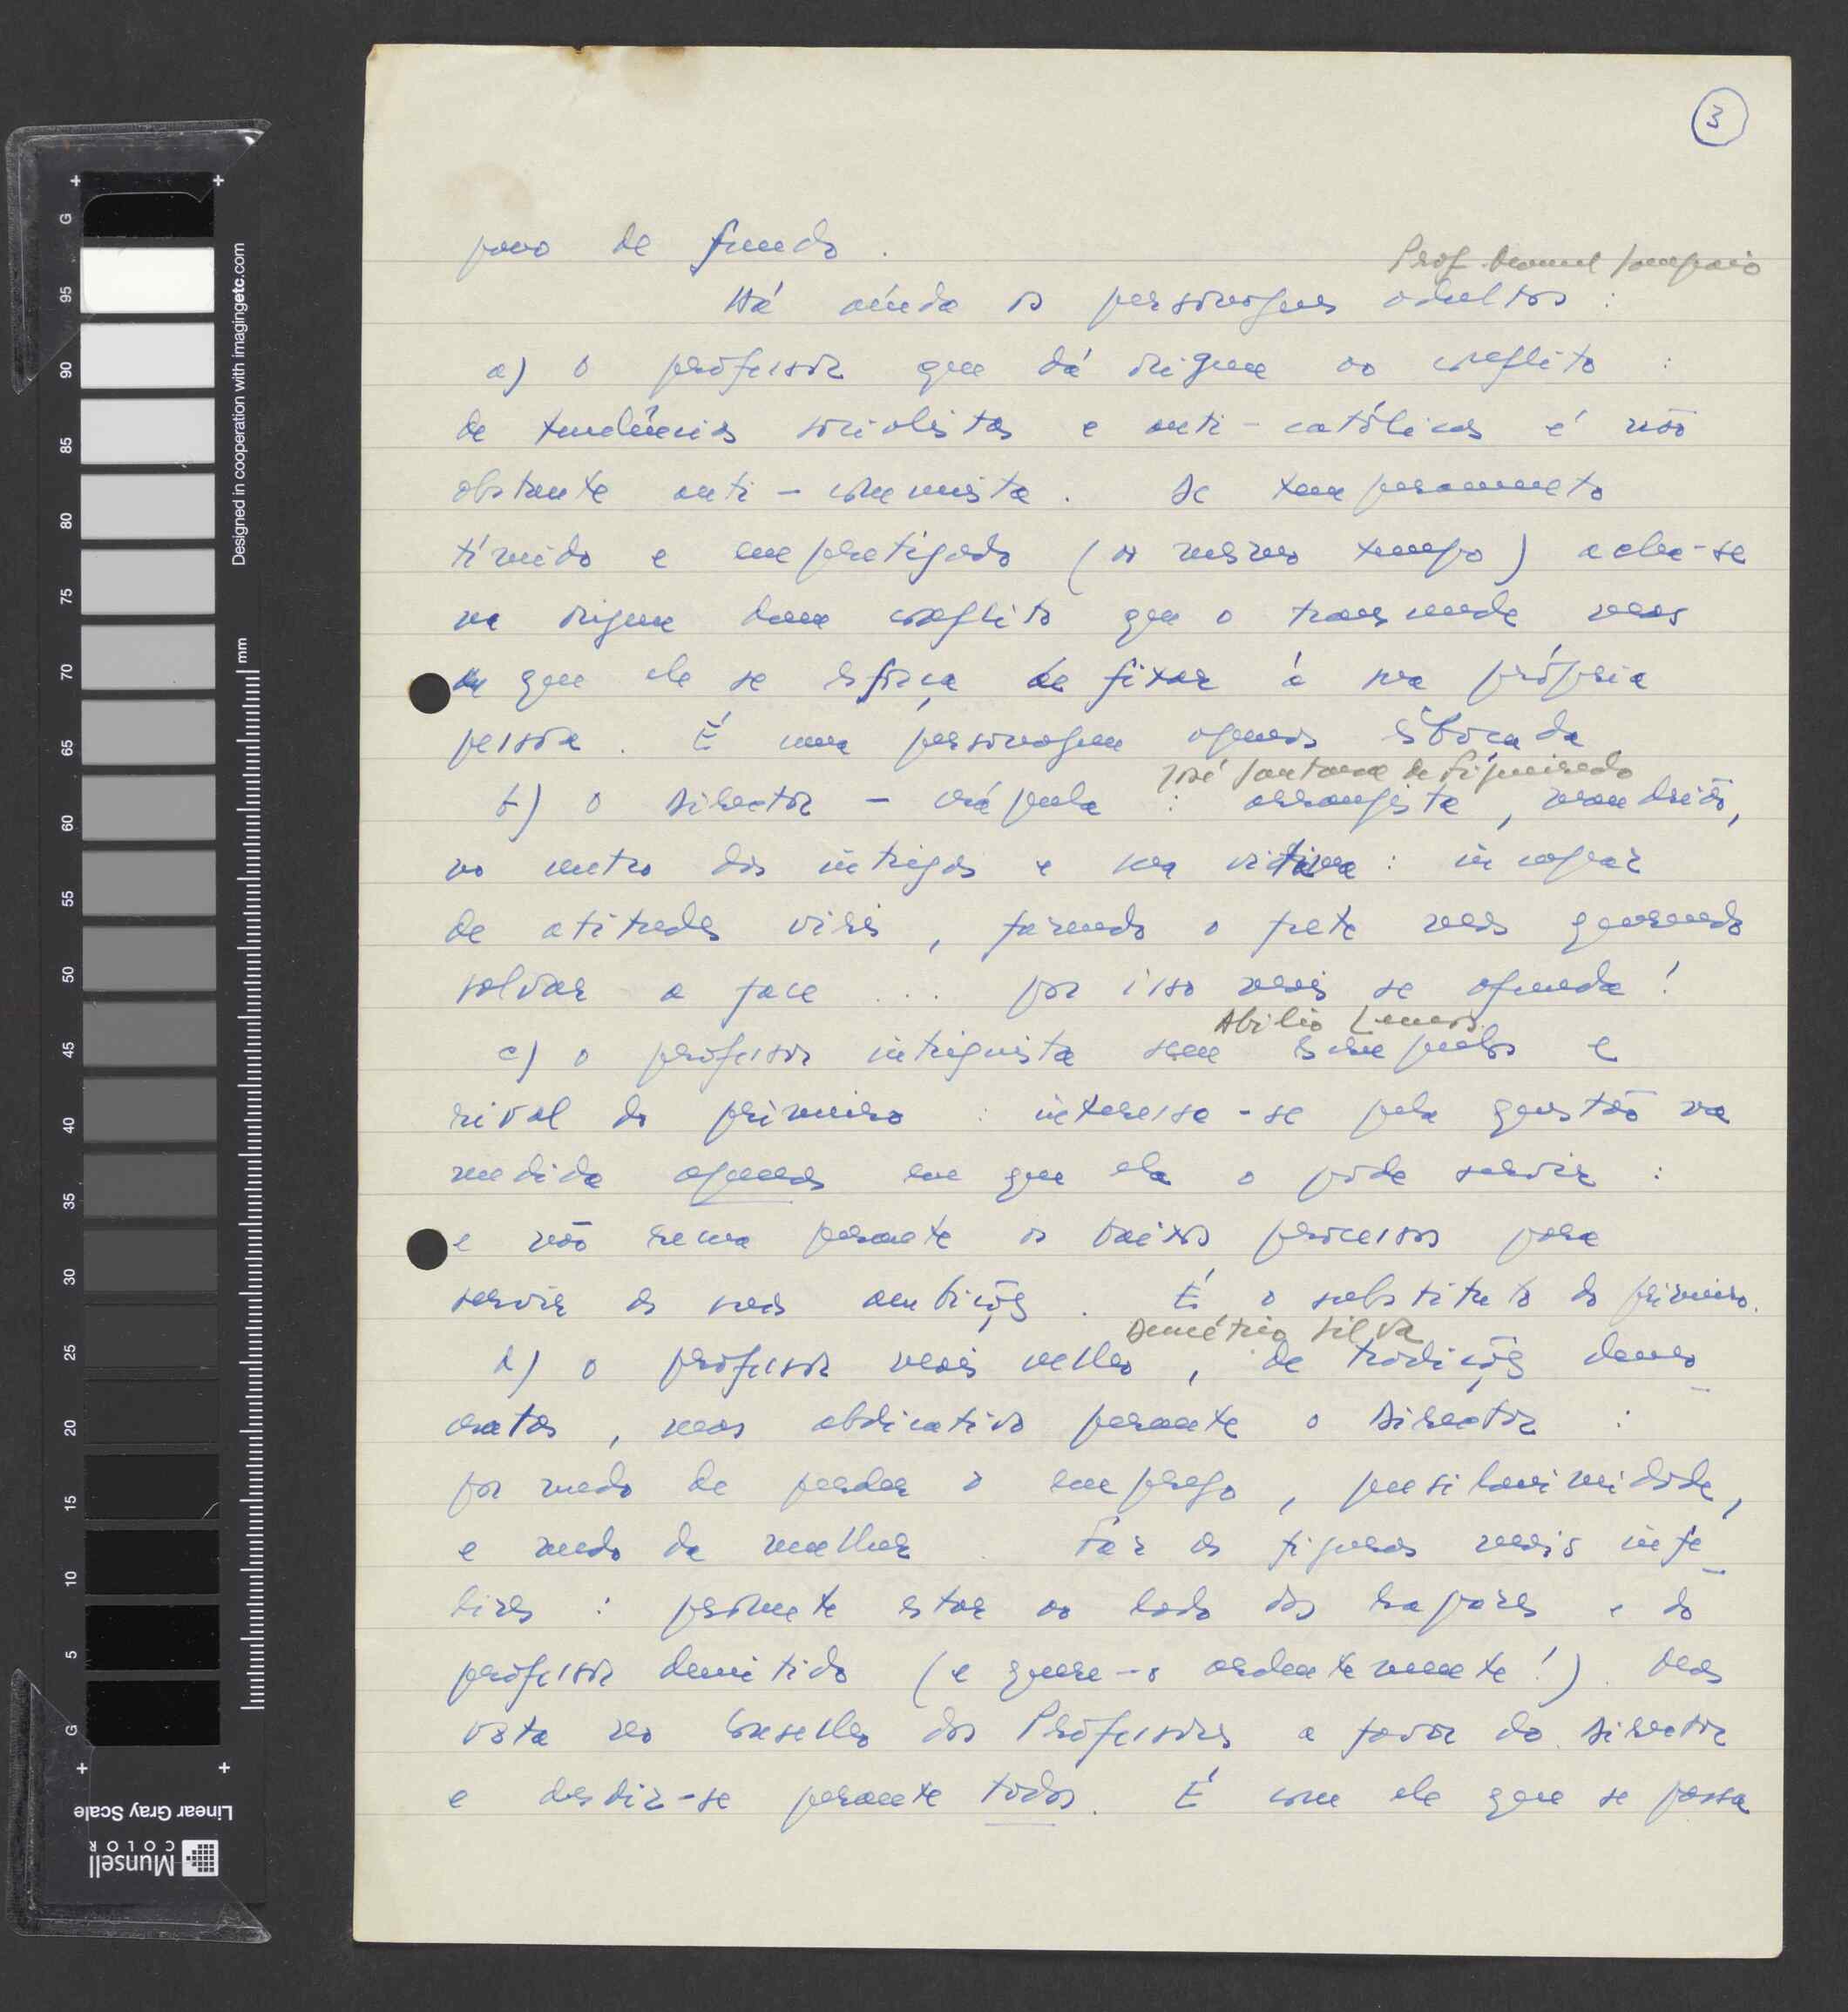 3
pano de fundo.
Prof. Manuel Sampaio
Há ainda os personagens adultos :
a) o professor que dá origem ao conflito :
de tendências socialistas e anti-católicas é não
obstante anti-comunista. De temperamento
tímido e empertigado (ao mesmo tempo) acha-se
na origem dum conflito que o transcende mas
que ele se esforça de fixar à sua própria
pessoa. É uma personagem apenas esboçada
José Santana de Figueiredo
b) o Director - crápula : arranjista, mandrião,
no centro das intrigas e sua vítima : incapaz
de atitudes viris, fazendo o frete mas querendo
salvar a face ... por isso mais se afunda !
Abílio Lemos
c) o professor intriguista sem escrupulos e
rival do primeiro : interessa-se pela questão na
medida apenas em que ela o pode servir :
e não recua perante os baixos processos para
servir as suas ambições. É o substituto do primeiro.
Demétrio Silva
d) o professor mais velho, de tradições demo-
cratas, mas abdicativo perante o Director :
por medo de perder o emprego, pusilanimidade,
e medo da mulher. Faz as figuras mais infe-
lizes : promete estar ao lado dos rapazes e do
professor demitido (e quere-o ardentemente!). Mas
vota no Conselho dos Professores a favor do Director
e desdiz-se perante todos. É com ele que se passa
Designed in cooperation with imagingetc.com
mm
G
95
90
85
80
75
70
65
60
55
50
45
40
35
30
25
20
15
10
5
G
Linear Gray Scale
Munsell
COLOR